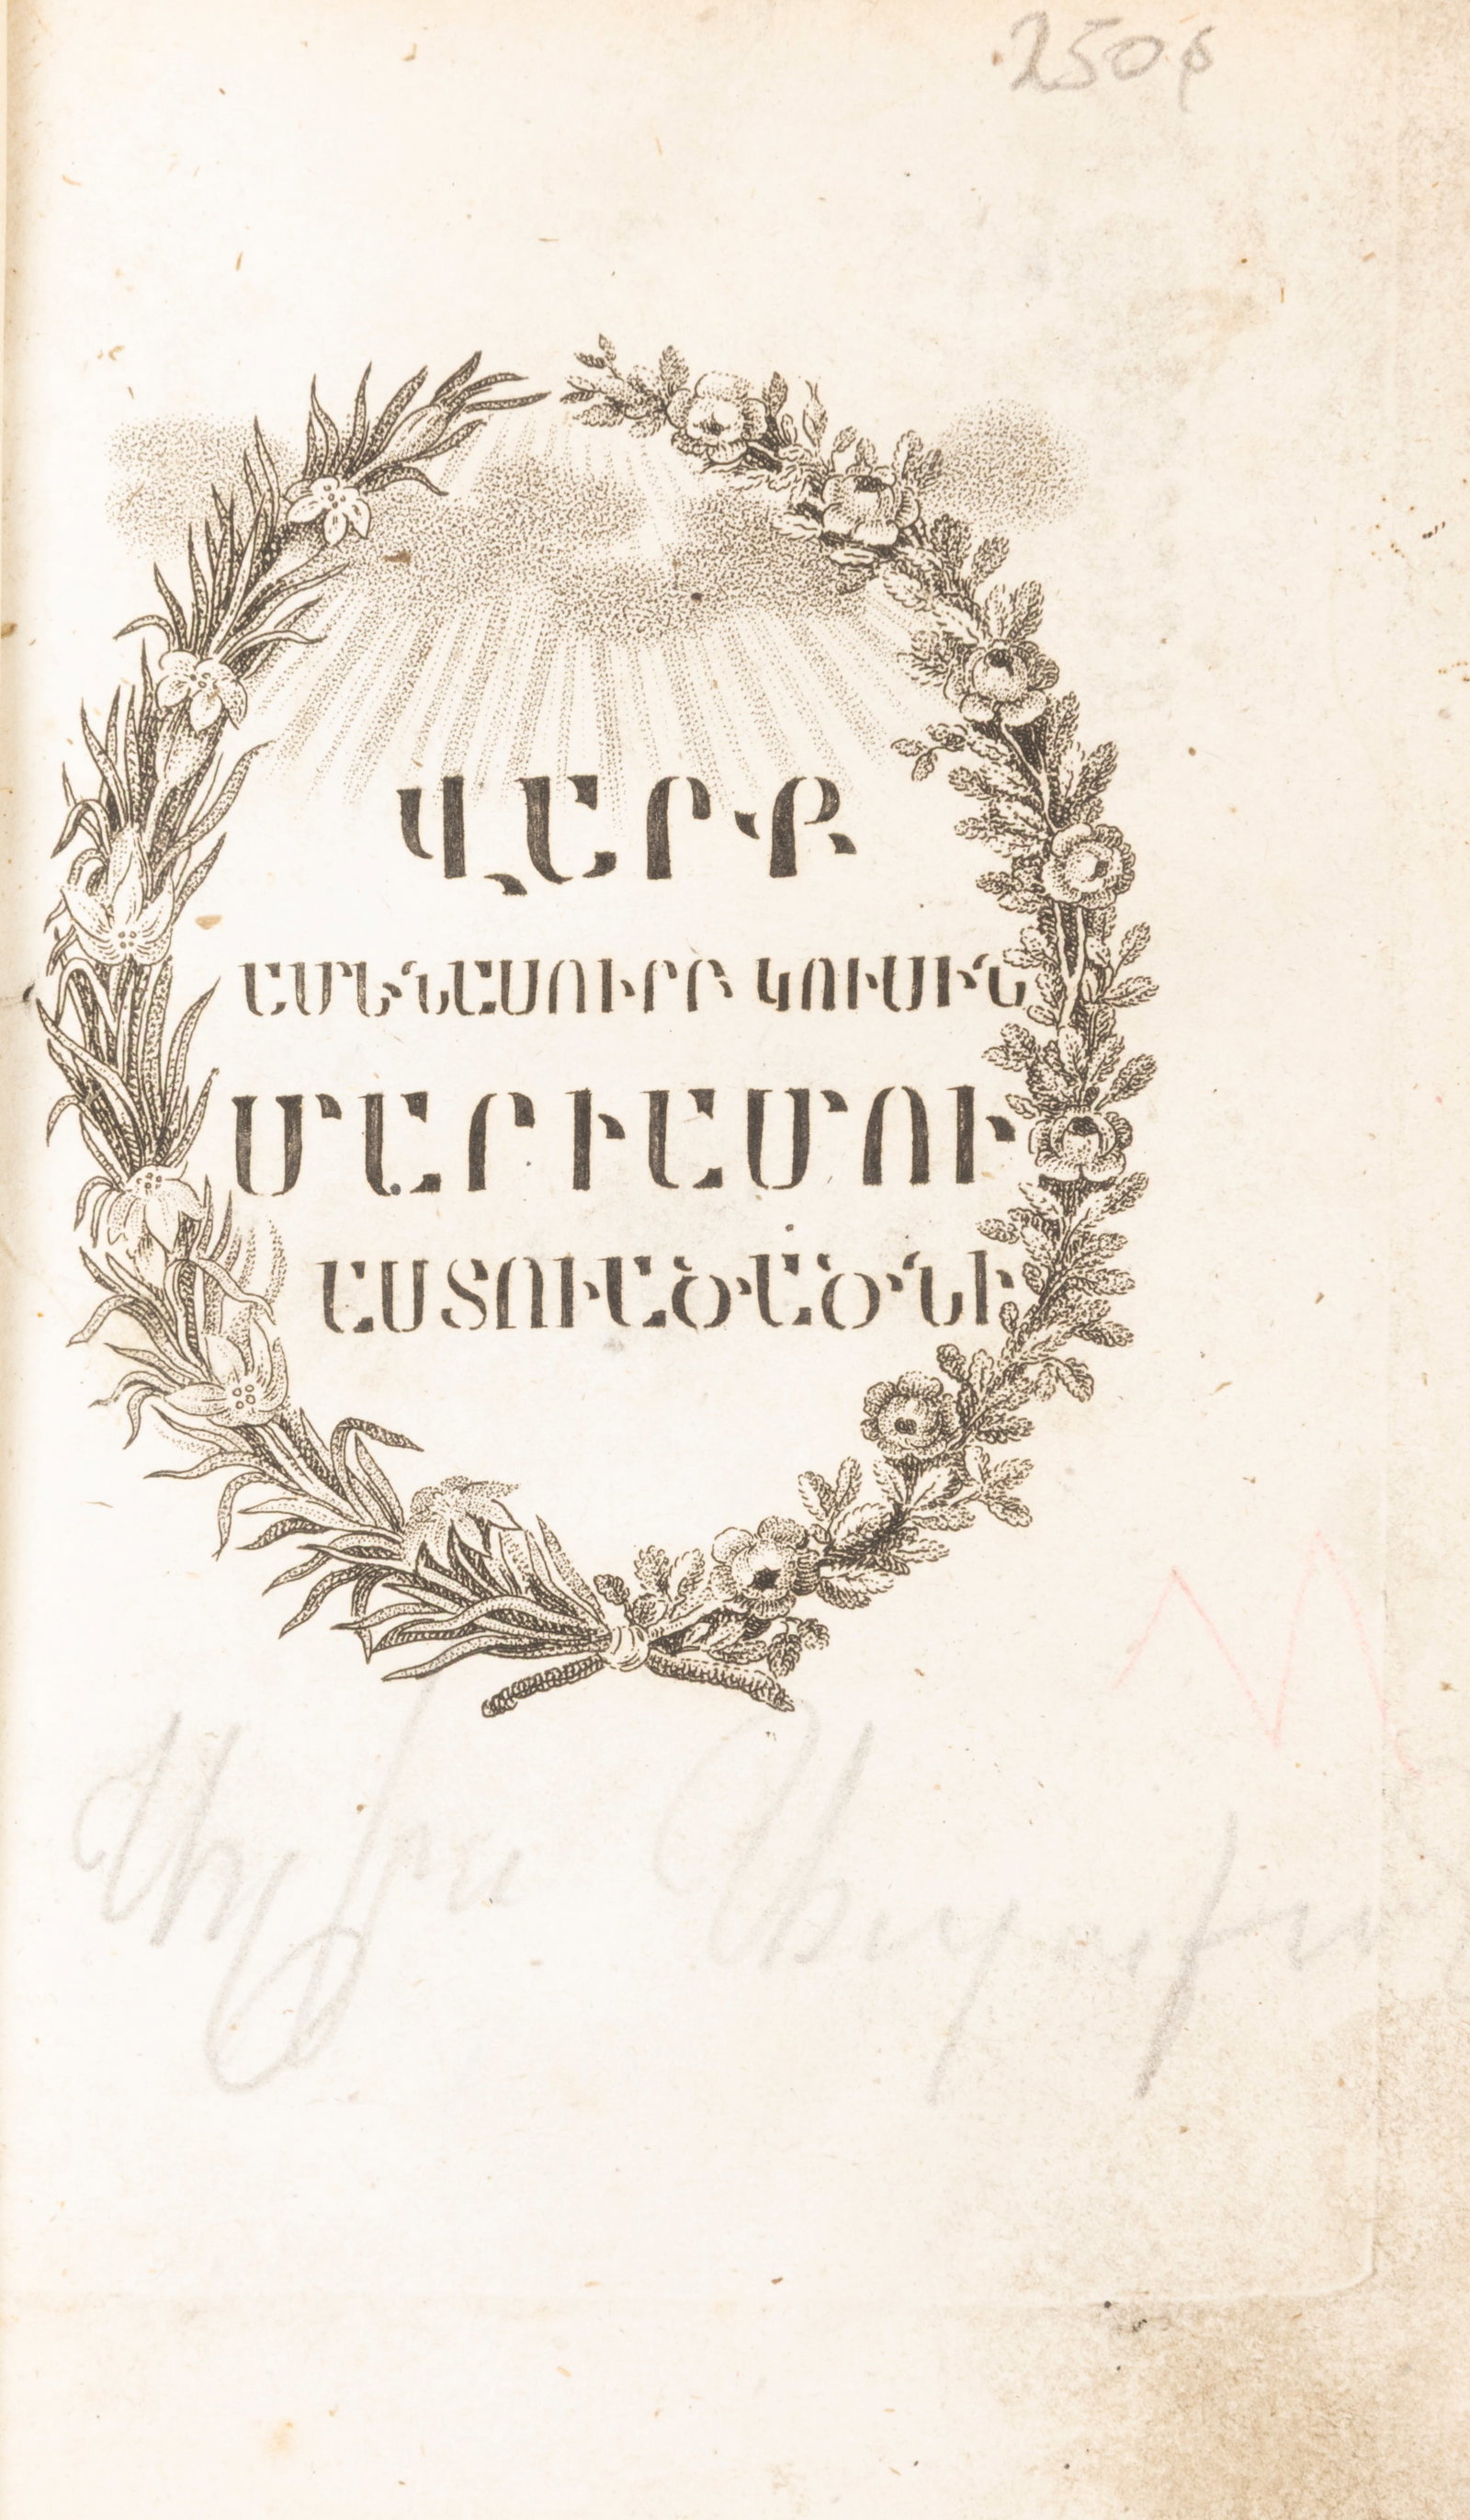 250
ՎԱՐՔ
ԱՄԵՆԱՍՈՒՐԲ ԿՈՒՍԻՆ
ՄԱՐԻԱՄՈՒ
ԱՍՏՈՒԱԾԱԾՆԻ